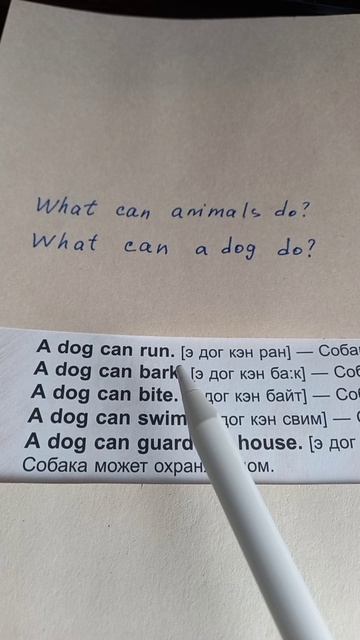 What can animals do?
What can a dog do?
A dog can run. [э дог кэн ран] — Соба
A dog can bark [э дог кэн ба:к] — Соб
A dog can bite. дог кэн байт] — Со
A dog can swim дог кэн свим] —
A dog can guard house. [э дог
Собака может ом.